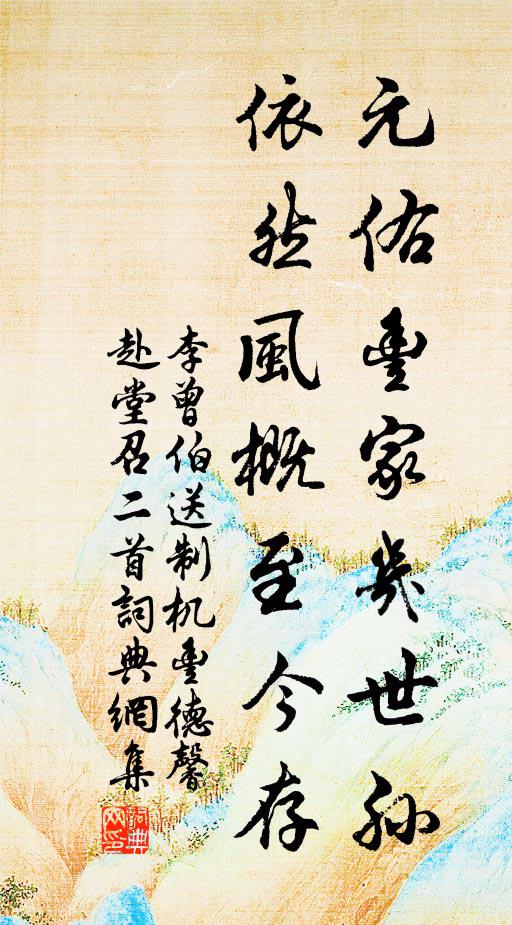 元佑豊家幾世孙
依然風概至今存
李曾伯送制机豊德馨
赴堂召二首詞典網集
詞典网印